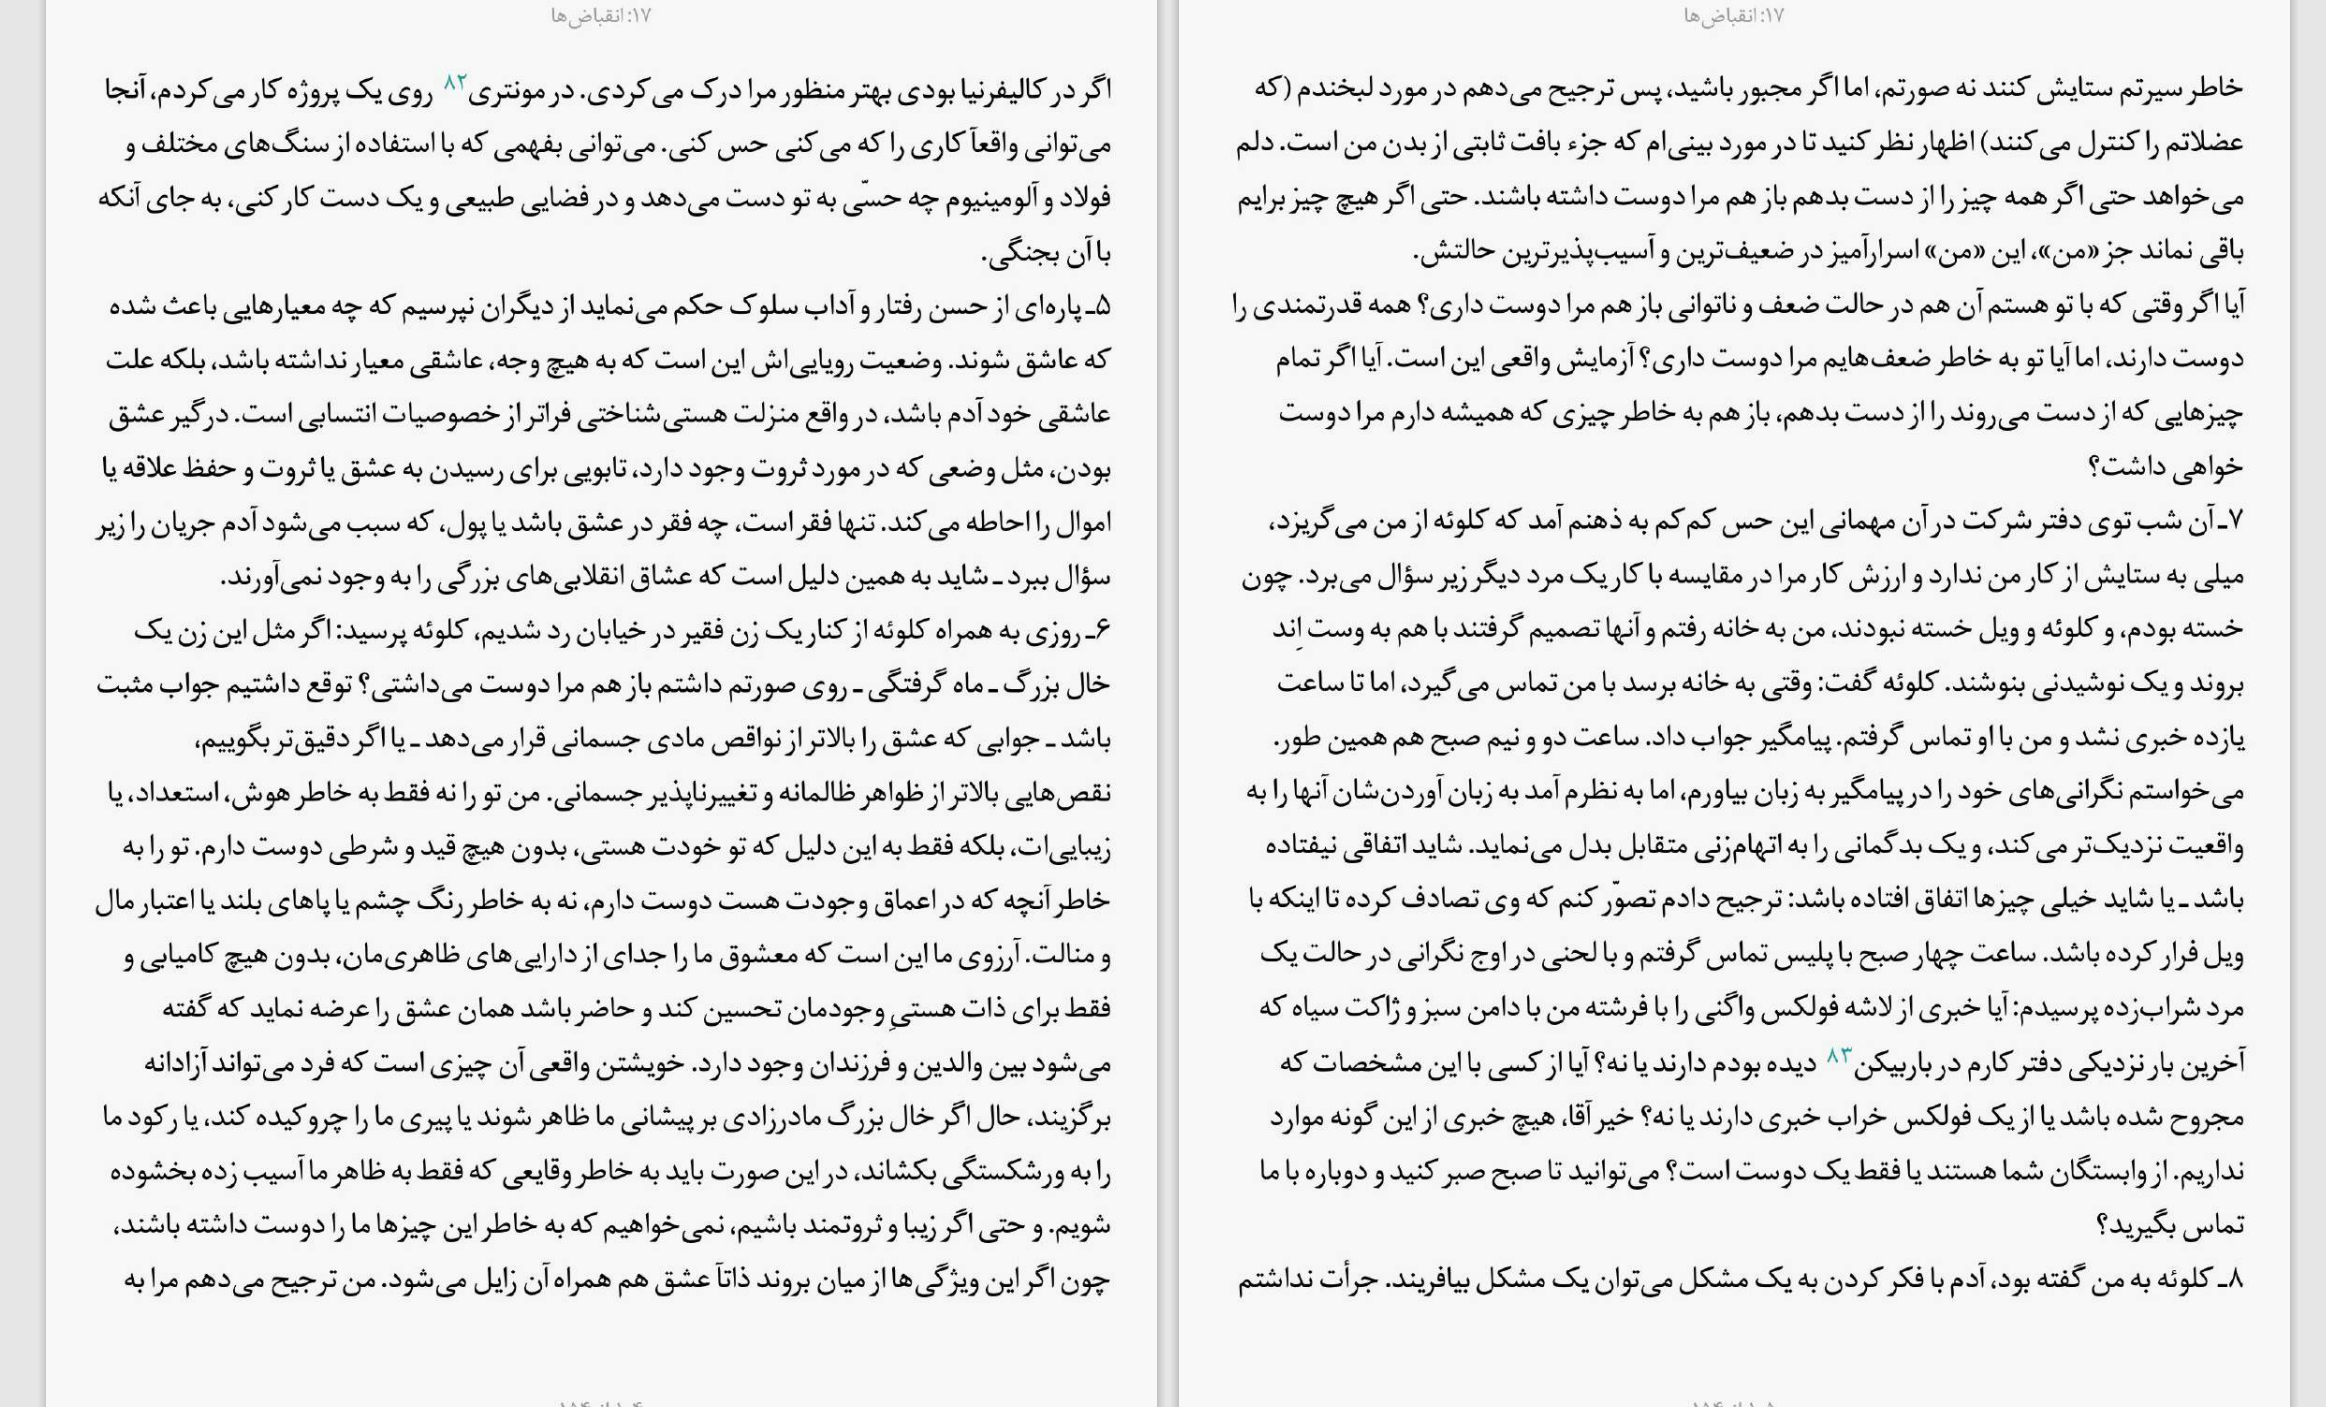 ۱۷: انقباض‌ها
اگر در کالیفرنیا بودی بهتر منظور مرا درک می‌کردی. در مونتری۸۲ روی یک پروژه کار می‌کردم، آنجا
می‌توانی واقعاً کاری را که می‌کنی حس کنی. می‌توانی بفهمی که با استفاده از سنگ‌های مختلف و
فولاد و آلومینیوم چه حسّی به تو دست می‌دهد و در فضایی طبیعی و یک دست کار کنی، به جای آنکه
با آن بجنگی.
۵ـ پاره‌ای از حسن رفتار و آداب سلوک حکم می‌نماید از دیگران نپرسیم که چه معیارهایی باعث شده
که عاشق شوند. وضعیت رویایی‌اش این است که به هیچ وجه، عاشقی معیار نداشته باشد، بلکه علت
عاشقی خود آدم باشد، در واقع منزلت هستی‌شناختی فراتر از خصوصیات انتسابی است. درگیر عشق
بودن، مثل وضعی که در مورد ثروت وجود دارد، تابویی برای رسیدن به عشق یا ثروت و حفظ علاقه یا
اموال را احاطه می‌کند. تنها فقر است، چه فقر در عشق باشد یا پول، که سبب می‌شود آدم جریان را زیر
سؤال ببرد ـ شاید به همین دلیل است که عشاق انقلابی‌های بزرگی را به وجود نمی‌آورند.
۶ـ روزی به همراه کلوئه از کنار یک زن فقیر در خیابان رد شدیم، کلوئه پرسید: اگر مثل این زن یک
خال بزرگ ـ ماه گرفتگی ـ روی صورتم داشتم باز هم مرا دوست می‌داشتی؟ توقع داشتیم جواب مثبت
باشد ـ جوابی که عشق را بالاتر از نواقص مادی جسمانی قرار می‌دهد ـ یا اگر دقیق‌تر بگوییم،
نقص‌هایی بالاتر از ظواهر ظالمانه و تغییرناپذیر جسمانی. من تو را نه فقط به خاطر هوش، استعداد، یا
زیبایی‌ات، بلکه فقط به این دلیل که تو خودت هستی، بدون هیچ قید و شرطی دوست دارم. تو را به
خاطر آنچه که در اعماق وجودت هست دوست دارم، نه به خاطر رنگ چشم یا پاهای بلند یا اعتبار مال
و منالت. آرزوی ما این است که معشوق ما را جدای از دارایی‌های ظاهری‌مان، بدون هیچ کامیابی و
فقط برای ذات هستیِ وجودمان تحسین کند و حاضر باشد همان عشق را عرضه نماید که گفته
می‌شود بین والدین و فرزندان وجود دارد. خویشتن واقعی آن چیزی است که فرد می‌تواند آزادانه
برگزیند، حال اگر خال بزرگ مادرزادی بر پیشانی ما ظاهر شوند یا پیری ما را چروکیده کند، یا رکود ما
را به ورشکستگی بکشاند، در این صورت باید به خاطر وقایعی که فقط به ظاهر ما آسیب زده بخشوده
شویم. و حتی اگر زیبا و ثروتمند باشیم، نمی‌خواهیم که به خاطر این چیزها ما را دوست داشته باشند،
چون اگر این ویژگی‌ها از میان بروند ذاتاً عشق هم همراه آن زایل می‌شود. من ترجیح می‌دهم مرا به
۱۷: انقباض‌ها
خاطر سیرتم ستایش کنند نه صورتم، اما اگر مجبور باشید، پس ترجیح می‌دهم در مورد لبخندم (که
عضلاتم را کنترل می‌کنند) اظهار نظر کنید تا در مورد بینی‌ام که جزء بافت ثابتی از بدن من است. دلم
می‌خواهد حتی اگر همه چیز را از دست بدهم باز هم مرا دوست داشته باشند. حتی اگر هیچ چیز برایم
باقی نماند جز «من»، این «من» اسرارآمیز در ضعیف‌ترین و آسیب‌پذیرترین حالتش.
آیا اگر وقتی که با تو هستم آن هم در حالت ضعف و ناتوانی باز هم مرا دوست داری؟ همه قدرتمندی را
دوست دارند، اما آیا تو به خاطر ضعف‌هایم مرا دوست داری؟ آزمایش واقعی این است. آیا اگر تمام
چیزهایی که از دست می‌روند را از دست بدهم، باز هم به خاطر چیزی که همیشه دارم مرا دوست
خواهی داشت؟
۷ـ آن شب توی دفتر شرکت در آن مهمانی این حس کم‌کم به ذهنم آمد که کلوئه از من می‌گریزد،
میلی به ستایش از کار من ندارد و ارزش کار مرا در مقایسه با کار یک مرد دیگر زیر سؤال می‌برد. چون
خسته بودم، و کلوئه و ویل خسته نبودند، من به خانه رفتم و آنها تصمیم گرفتند با هم به وست اِند
بروند و یک نوشیدنی بنوشند. کلوئه گفت: وقتی به خانه برسد با من تماس می‌گیرد، اما تا ساعت
یازده خبری نشد و من با او تماس گرفتم. پیامگیر جواب داد. ساعت دو و نیم صبح هم همین طور.
می‌خواستم نگرانی‌های خود را در پیامگیر به زبان بیاورم، اما به نظرم آمد به زبان آوردن‌شان آنها را به
واقعیت نزدیک‌تر می‌کند، و یک بدگمانی را به اتهام‌زنی متقابل بدل می‌نماید. شاید اتفاقی نیفتاده
باشد ـ یا شاید خیلی چیزها اتفاق افتاده باشد: ترجیح دادم تصوّر کنم که وی تصادف کرده تا اینکه با
ویل فرار کرده باشد. ساعت چهار صبح با پلیس تماس گرفتم و با لحنی در اوج نگرانی در حالت یک
مرد شراب‌زده پرسیدم: آیا خبری از لاشه فولکس واگنی را با فرشته من با دامن سبز و ژاکت سیاه که
آخرین بار نزدیکی دفتر کارم در باربیکن۸۳ دیده بودم دارند یا نه؟ آیا از کسی با این مشخصات که
مجروح شده باشد یا از یک فولکس خراب خبری دارند یا نه؟ خیر آقا، هیچ خبری از این گونه موارد
نداریم. از وابستگان شما هستند یا فقط یک دوست است؟ می‌توانید تا صبح صبر کنید و دوباره با ما
تماس بگیرید؟
۸ـ کلوئه به من گفته بود، آدم با فکر کردن به یک مشکل می‌توان یک مشکل بیافریند. جرأت نداشتم